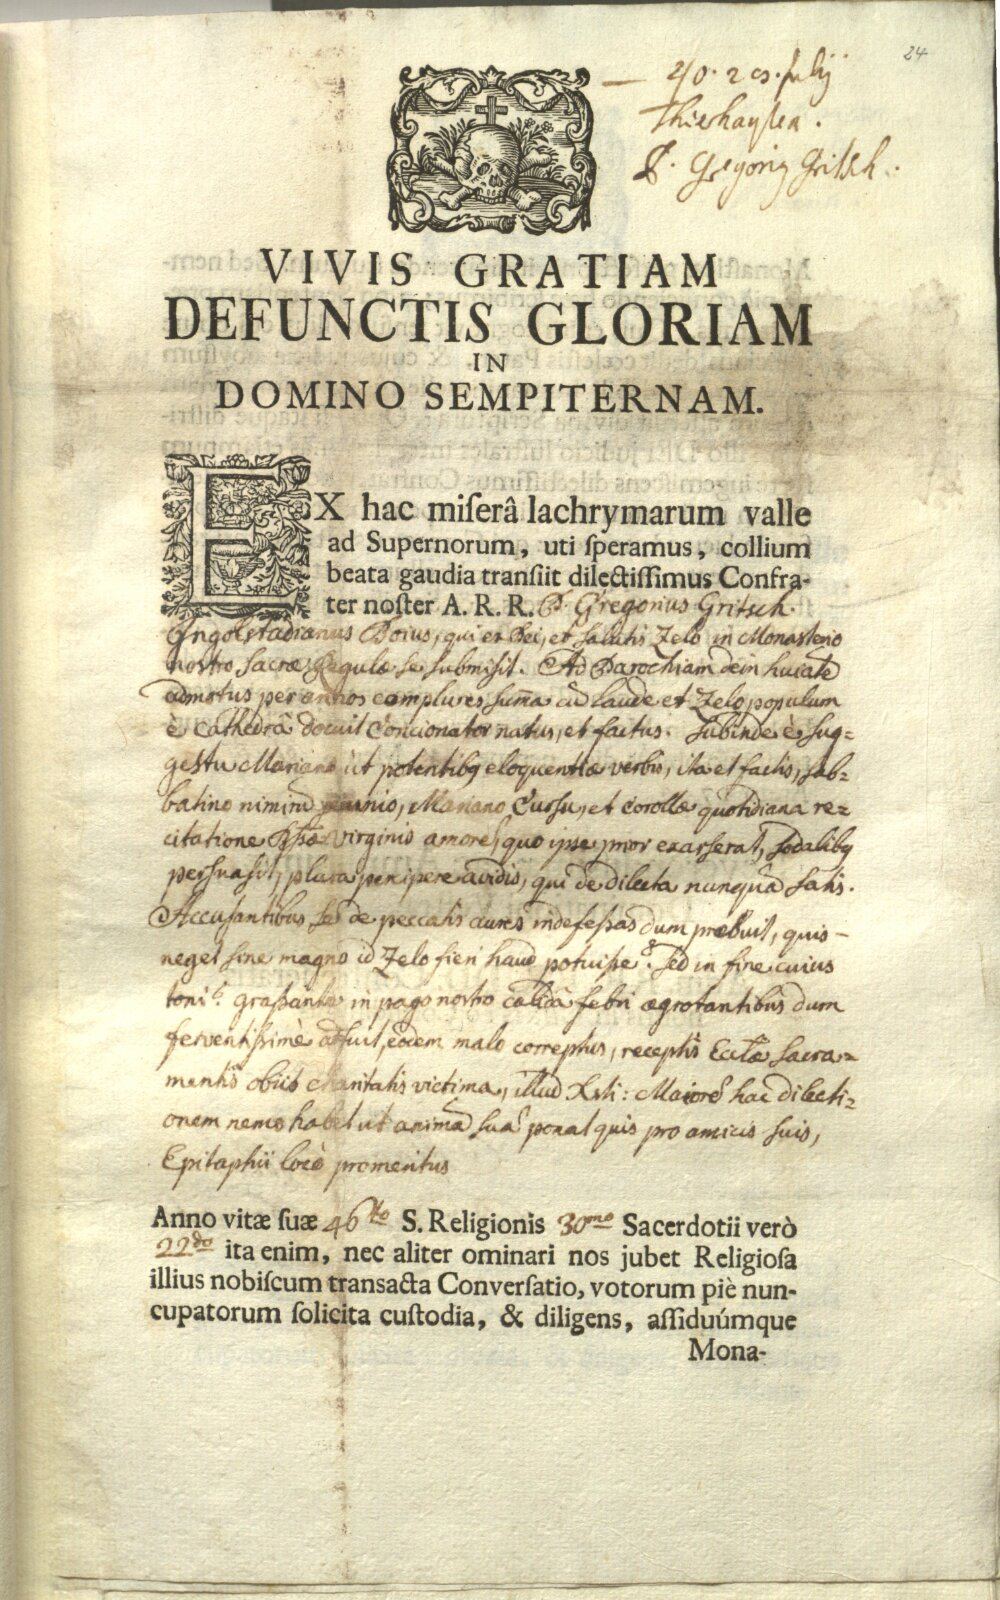 24
Thierhaupten.
P. Gregorig Gritsch.
VIVIS GRATIAM
DEFUNCTIS GLORIAM
IN
DOMINO SEMPITERNAM.
EX hac miserâ lachrymarum valle
ad Supernorum, uti speramus, collium
beata gaudia transiit dilectissimus Confra-
ter noster A. R. R. P. Gregorius Gritsch.
Ingolstadianus Boius, qui ex Dei, et salutis Zelo in Monasterio
nostro sacræ Regulæ se submisit. Ad Parochiam dein huiate
admotus per annos complures summa cũ laude et Zelo populum
è Cathedrâ docuit Concionator natus, et factus. Subinde è sug=
gestu Mariano ut potentibq eloquentiæ verbis, ita et factis, sab=
batino nimirũ jejunio, Mariano Cursu, et Corollæ quotidiana re=
citatione Bssæ Virginis amorẽ, quo ipse prior exarserat, sodalibq
persuasit, plura percipere avidis, qui de dilecta nunquã satis.
Accusantibus se de peccatis aures indefessas dum præbuit, quis
neget sine magno id Zelo fieri haud potuisse? Sed in fine cuius
toni? grassante in pago nostro calidâ febri ægrotantibus dum
ferventissimè adfuit, eodem malo correptus, receptis Eccłæ Sacra=
mentis obiit charitatis victima, illud Xsti: Maiorẽ hac dilecti=
onem nemo habet ut animã suã ponat quis pro amicis suis,
Epitaphii locô promeritus
Anno vitæ suæ 46to S. Religionis 30mo Sacerdotii verò
22do ita enim, nec aliter ominari nos jubet Religiosa
illius nobiscum transacta Conversatio, votorum piè nun-
cupatorum solicita custodia, & diligens, assiduúmque
Mona-